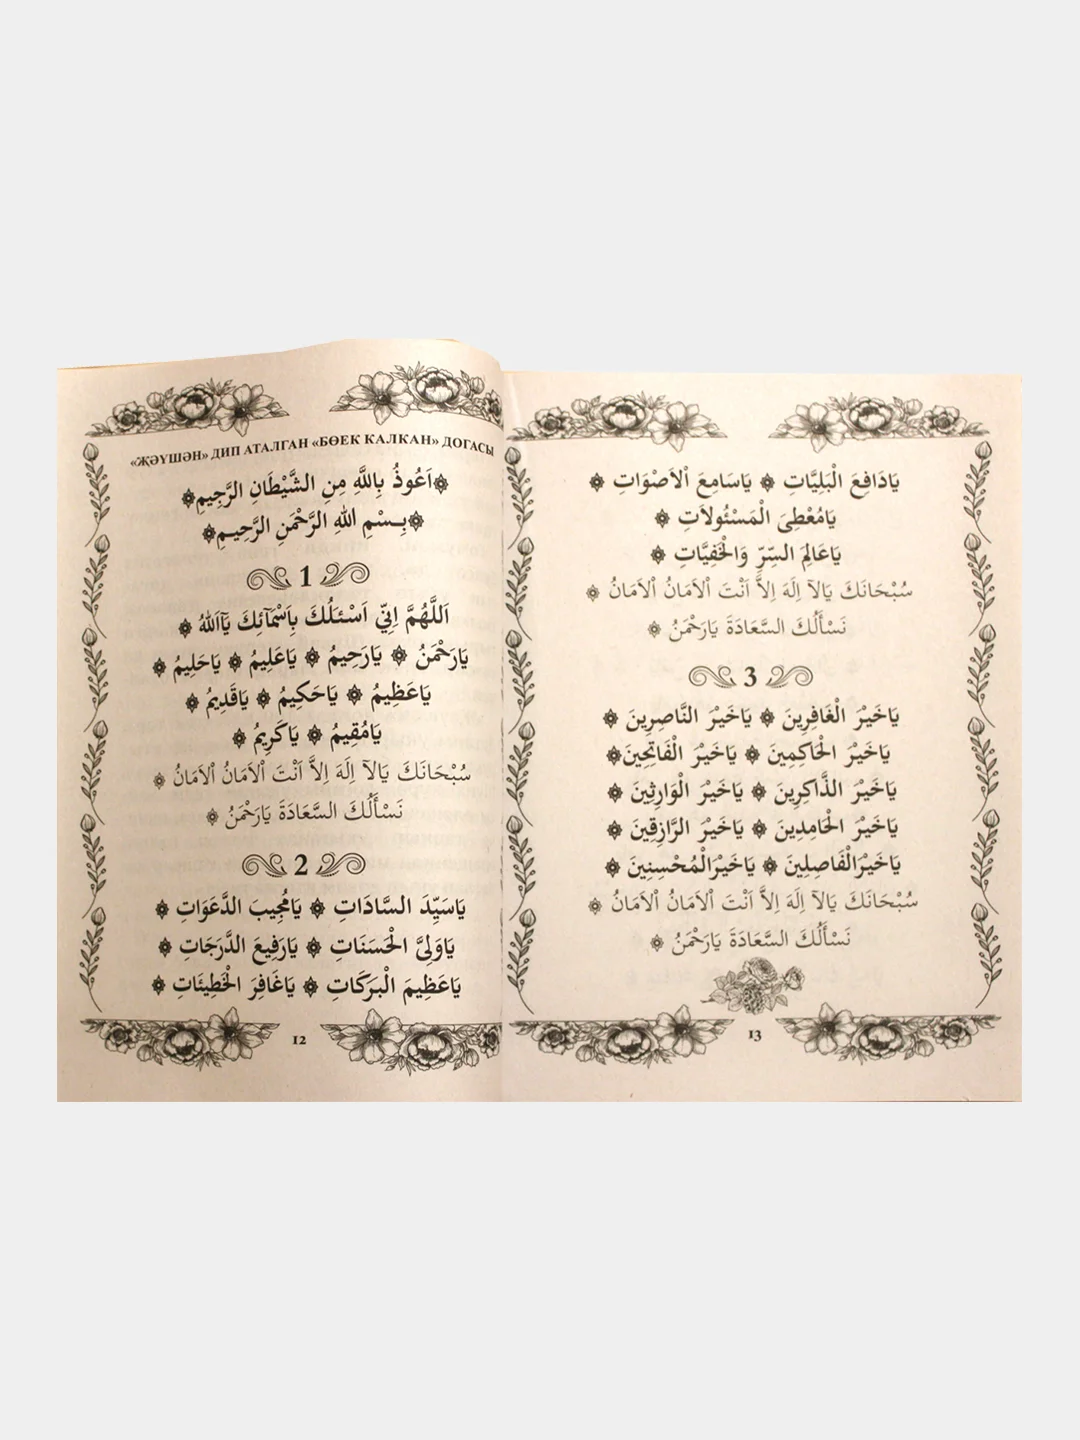 «ҖӘҮШӘН» ДИП АТАЛГАН «БӨЕК КАЛКАН» ДОГАСЫ
اَعُوذُ بِاللَّهِ مِنِ الشَّيْطَانِ الرَّجِيمِ
بِسْمِ اللهِ الرَّحْمَنِ الرَّحِيمِ
1
اَللَّهُمَّ اِنِّي اَسْئَلُكَ بِاَسْمَآئِكَ يَآاَللهُ
يَارَحْمَنُ يَارَحِيمُ يَاعَلِيمُ يَاحَلِيمُ
يَاعَظِيمُ يَاحَكِيمُ يَاقَدِيمُ
يَامُقِيمُ يَاكَرِيمُ
سُبْحَانَكَ يَالآ اِلَهَ اِلاَّ اَنْتَ اْلاَمَانُ اْلاَمَانُ
نَسْأَلُكَ السَّعَادَةَ يَارَحْمَنُ
2
يَاسَيِّدَ السَّادَاتِ يَامُجِيبَ الدَّعَوَاتِ
يَاوَلِىَّ الْحَسَنَاتِ يَارَفِيعَ الدَّرَجَاتِ
يَاعَظِيمَ الْبَرَكَاتِ يَاغَافِرَ الْخَطِيئَاتِ
12
يَادَافِعَ الْبَلِيَّاتِ يَاسَامِعَ اْلاَصْوَاتِ
يَامُعْطِىَ الْمَسْئُولاَتِ
يَاعَالِمَ السِّرِّ وَالْخَفِيَّاتِ
سُبْحَانَكَ يَالآ اِلَهَ اِلاَّ اَنْتَ اْلاَمَانُ اْلاَمَانُ
نَسْأَلُكَ السَّعَادَةَ يَارَحْمَنُ
3
يَاخَيْرَ الْغَافِرِينَ يَاخَيْرَ النَّاصِرِينَ
يَاخَيْرَ الْحَاكِمِينَ يَاخَيْرَ الْفَاتِحِينَ
يَاخَيْرَ الذَّاكِرِينَ يَاخَيْرَ الْوَارِثِينَ
يَاخَيْرَ الْحَامِدِينَ يَاخَيْرَ الرَّازِقِينَ
يَاخَيْرَالْفَاصِلِينَ يَاخَيْرَالْمُحْسِنِينَ
سُبْحَانَكَ يَالآ اِلَهَ اِلاَّ اَنْتَ اْلاَمَانُ اْلاَمَانُ
نَسْأَلُكَ السَّعَادَةَ يَارَحْمَنُ
13